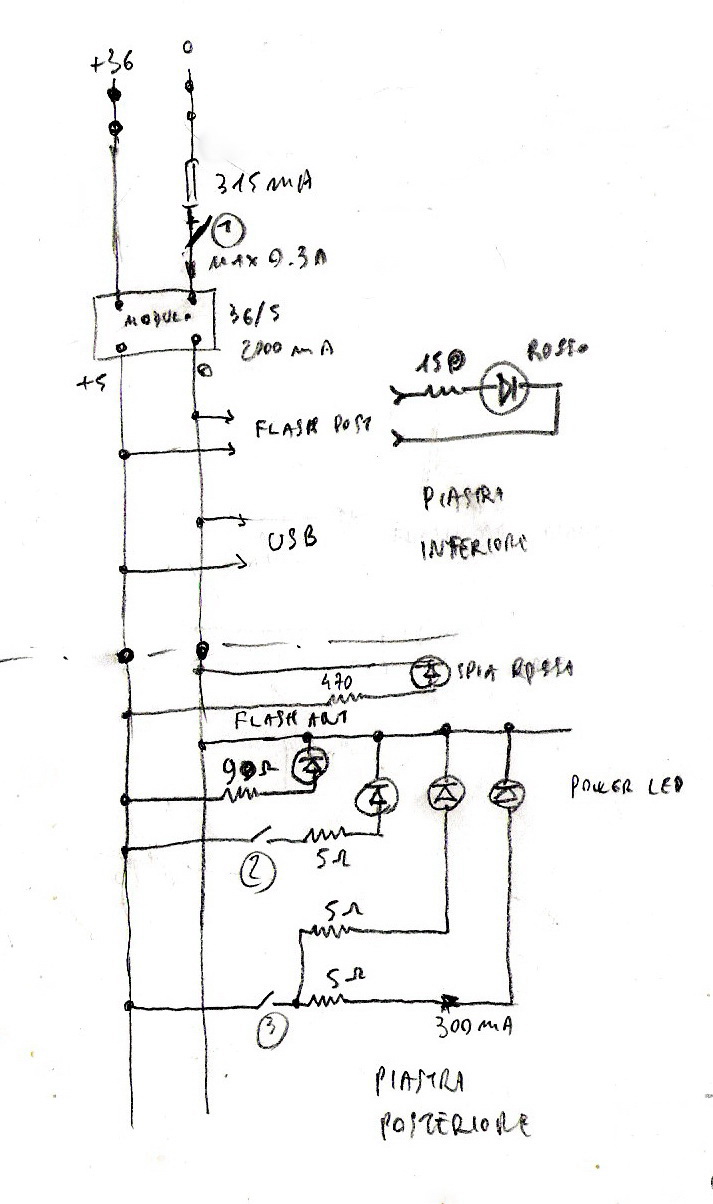 +36
0
315 mA
1
MAX 0.3A
MODULO
36/5
2000 mA
+5
0
150
ROSSO
FLASH POST
PIASTRA
INFERIORE
USB
470
SPIA ROSSA
FLASH ANT
90Ω
POWER LED
2
5Ω
5Ω
5Ω
3
300 mA
PIASTRA
POSTERIORE